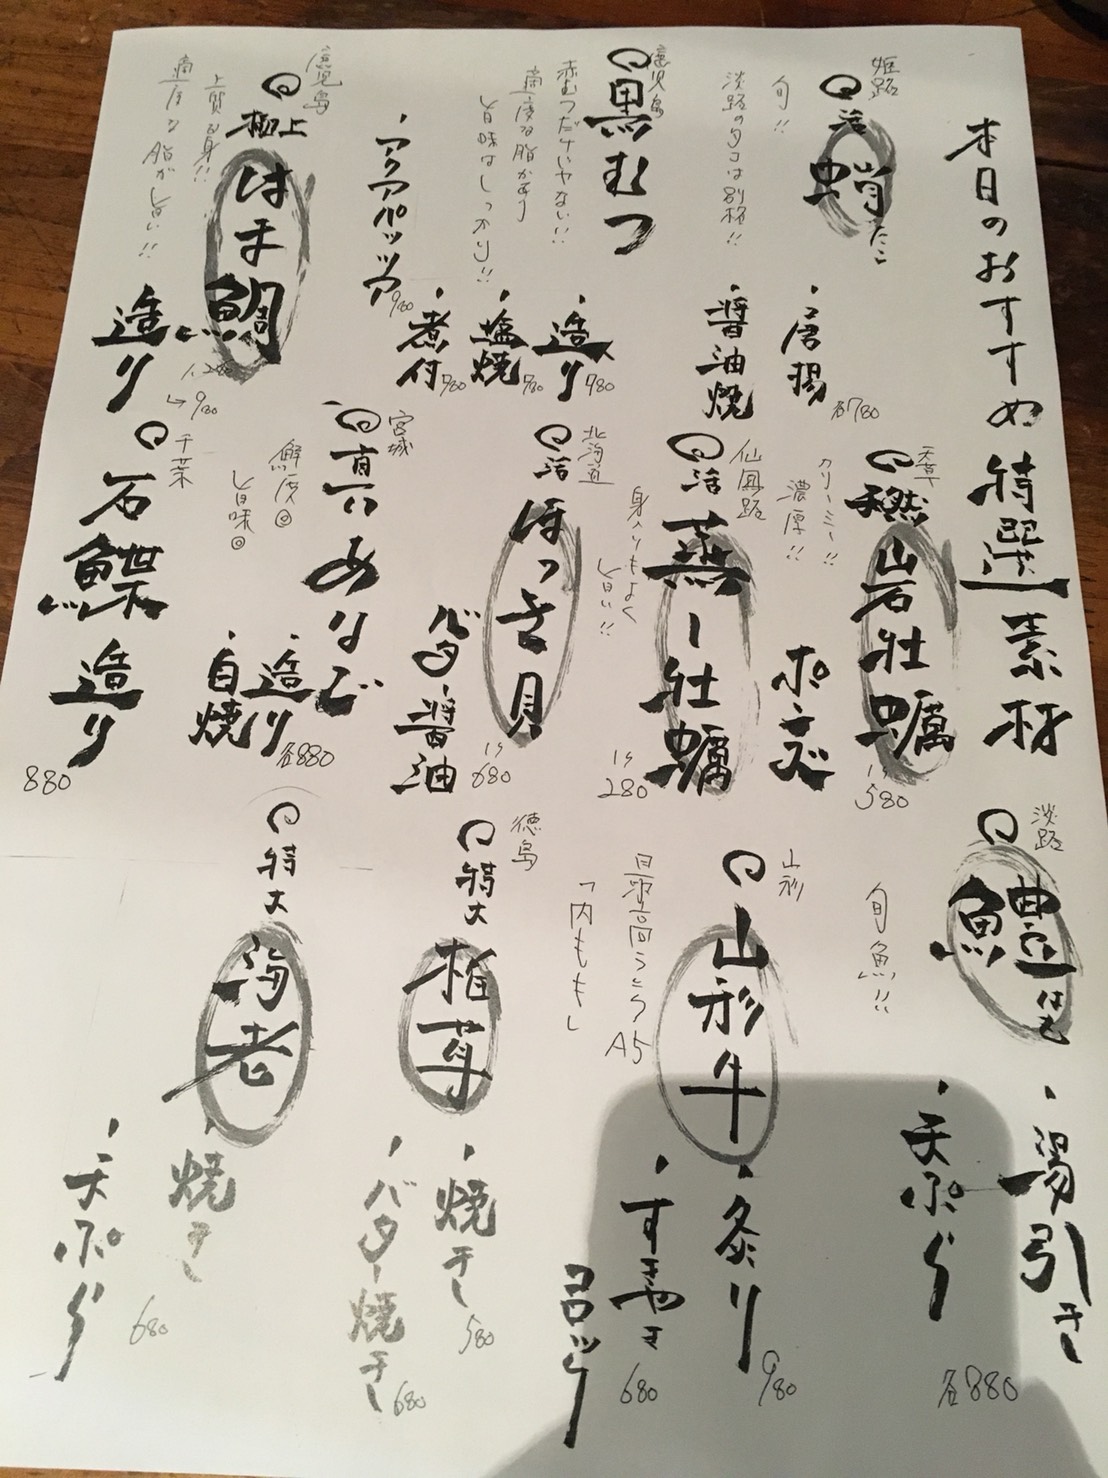 本日のおすすめ特選素材
姫路
活蛸たこ
旬!!
淡路のタコは別格!!
・唐揚
・醤油焼
各780
鹿児島
黒むつ
赤むつだけじゃない!!
適度な脂があり
旨味はしっかり!!
・造り
980
・塩焼
780
・煮付
980
・アクアパッツァ
980
鹿児島
極上
はま鯛
上質な身!!
適度な脂が旨い!!
造り
1,280
→980
天草
天然
岩牡蠣
クリーミー!!
濃厚!!
ポン酢
1ケ
580
仙鳳趾
活
蒸し牡蠣
身入りもよく
旨い!!
1ケ
280
北海道
活
ほっき貝
バター醤油
1ケ
680
宮城
真あなご
鮮度◎
旨味◎
・造り
・白焼
各880
千葉
石鰈
造り
880
淡路
鱧はも
旬魚!!
・湯引き
・天ぷら
各880
山形
山形牛
最高ランクA5
「内もも」
・炙り
980
・すき焼き
コロッケ
680
徳島
特大
椎茸
・焼き
580
・バター焼き
680
特大
海老
・焼き
・天ぷら
680